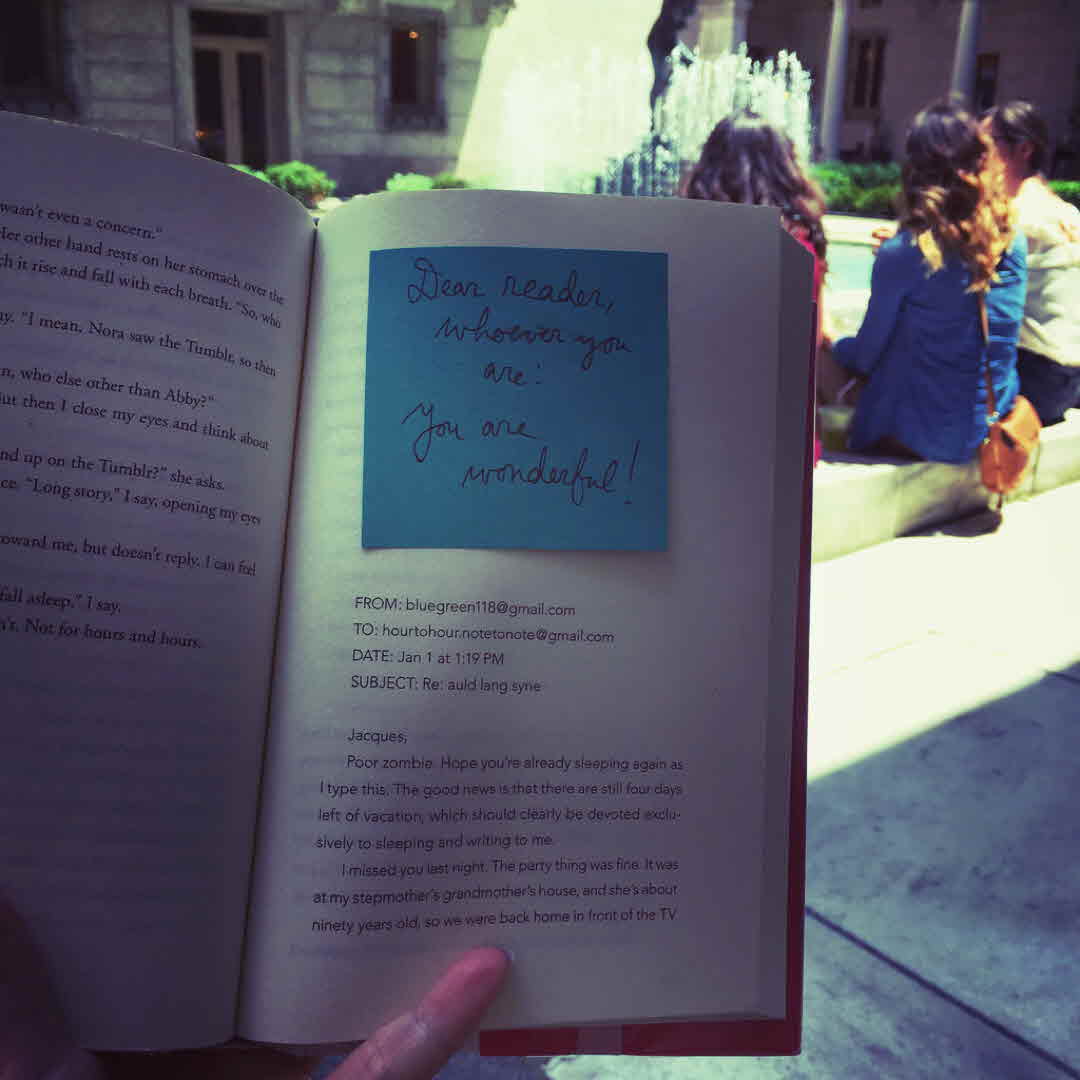 wasn't even a concern."
Her other hand rests on her stomach over the
ch it rise and fall with each breath. "So, who
ny. "I mean, Nora saw the Tumblr, so then
n, who else other than Abby?"
But then I close my eyes and think about
nd up on the Tumblr?" she asks.
ce. "Long story," I say, opening my eyes
toward me, but doesn't reply. I can feel
fall asleep," I say.
n't. Not for hours and hours.
Dear reader,
whoever you
are:
You are
wonderful!
FROM: bluegreen118@gmail.com
TO: hourtohour.notetonote@gmail.com
DATE: Jan 1 at 1:19 PM
SUBJECT: Re: auld lang syne
Jacques,
Poor zombie. Hope you're already sleeping again as
I type this. The good news is that there are still four days
left of vacation, which should clearly be devoted exclu-
sively to sleeping and writing to me.
I missed you last night. The party thing was fine. It was
at my stepmother's grandmother's house, and she's about
ninety years old, so we were back home in front of the TV